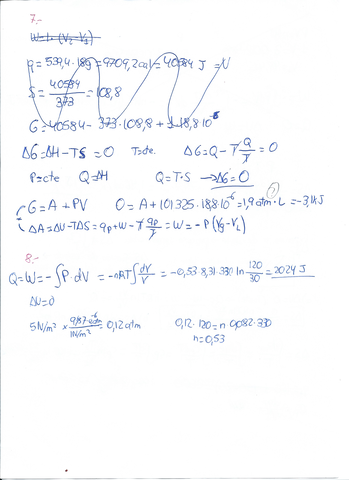 7.-
W=1· (V₂-V₁)
q = 539,4·18g = 9709,2cal = 40584 J = N
S = 40584/373 = 108,8
G = 40584 - 373·108,8 + 1·18,8·10⁻⁶
ΔG = ΔH - TS = 0 T=cte. ΔG = Q - T Q/T = 0
P=cte Q=ΔH Q=T·S → ΔG = 0
G = A + PV 0 = A + 101325·18,8·10⁻⁶ = 1,9 atm·L =
ΔA = ΔU - TΔS = qp + W - T qp/T = W = -P(Vg - VL)
8.-
Q = W = -∫P·dV = -nRT∫dV/V = -0,53·8,31·330 ln 120/30 = 2024 J
ΔU=0
5N/m² × /1N/m² = 0,12 atm 0,12·120 = n·0,082·330
n=0,53